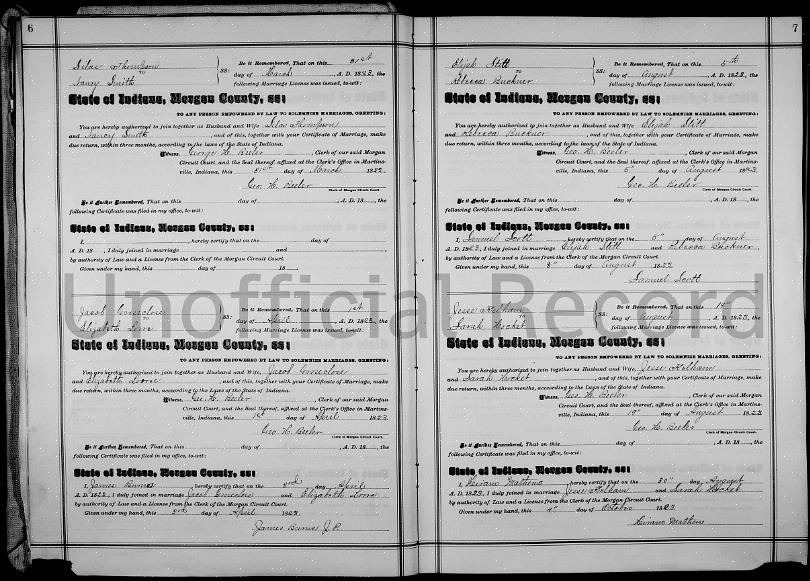 6
Silas Thompson
TO
Nancy Smith
SS:
Be it Remembered, That on this 31st
day of March A. D. 1823, the
following Marriage License was issued, to-wit:
State of Indiana, Morgan County, ss:
TO ANY PERSON EMPOWERED BY LAW TO SOLEMNIZE MARRIAGES, GREETING:
You are hereby authorized to join together as Husband and Wife Silas Thompson
and Nancy Smith and of this, together with your Certificate of Marriage, make
due return, within three months, according to the laws of the State of Indiana.
Witness, George H. Beeler, Clerk of our said Morgan
Circuit Court, and the Seal thereof, affixed at the Clerk's Office in Martins-
ville, Indiana, this 31st day of March 1823
Geo. H. Beeler
Clerk of Morgan Circuit Court.
Be it further Remembered, That on this day of , A. D. 18 , the
following Certificate was filed in my office, to-wit:
State of Indiana, Morgan County, ss:
I, , hereby certify that on the day of
A. D. 18 , I duly joined in marriage and
by authority of Law and a License from the Clerk of the Morgan Circuit Court.
Given under my hand, this day of 18
Jacob
TO
Elizabeth
SS:
Be it Remembered, That on this 1st
day of April A. D. 1823, the
following Marriage License was issued, to-wit:
State of Indiana, Morgan County, ss:
TO ANY PERSON EMPOWERED BY LAW TO SOLEMNIZE MARRIAGES, GREETING:
You are hereby authorized to join together as Husband and Wife Jacob
and Elizabeth and of this, together with your Certificate of Marriage, make
due return, within three months, according to the Laws of the State of Indiana.
Witness, Geo. H. Beeler, Clerk of our said Morgan
Circuit Court, and the Seal thereof, affixed at the Clerk's Office in Martins-
ville, Indiana, this 1st day of April 1823
Geo. H. Beeler
Clerk of Morgan Circuit Court.
Be it further Remembered, That on this day of , A. D. 18 , the
following Certificate was filed in my office, to-wit:
State of Indiana, Morgan County, ss:
I, James Burns hereby certify that on the 2nd day April
A. D. 1823, I duly joined in marriage Jacob and Elizabeth
by authority of Law and a License from the Clerk of the Morgan Circuit Court.
Given under my hand, this 2nd day of April 1823.
James Burns J.P.
7
Elijah Stitt
TO
Rebecca Buckner
SS:
Be it Remembered, That on this 5th
day of August , A. D. 1823, the
following Marriage License was issued, to-wit:
State of Indiana, Morgan County, ss:
TO ANY PERSON EMPOWERED BY LAW TO SOLEMNIZE MARRIAGES, GREETING:
You are hereby authorized to join together as Husband and Wife Elijah Stitt
and Rebecca Buckner , and of this, together with your Certificate of Marriage, make
due return, within three months, according to the laws of the State of Indiana.
Witness, Geo. H. Beeler , Clerk of our said Morgan
Circuit Court, and the Seal thereof, affixed at the Clerk's Office in Martins-
ville, Indiana, this 5" day of August 1823
Geo. H. Beeler
Clerk Morgan Circuit Court.
Be it further Remembered, That on this day of , A. D. 18 , the
following Certificate was filed in my office, to-wit:
State of Indiana, Morgan County, ss:
I, Samuel Scott , hereby certify that on the day of August
A. D. 1823, I duly joined in marriage Elijah Stitt and Rebecca Buckner,
by authority of Law and a License from the Clerk of the Morgan Circuit Court.
Given under my hand, this day of August 1823
Samuel Scott
Jesse
TO
Sarah Hocket
SS:
Be it Remembered, That on this
day of August , A. D. 1823, the
following Marriage License was issued, to-wit:
State of Indiana, Morgan County, ss:
TO ANY PERSON EMPOWERED BY LAW TO SOLEMNIZE MARRIAGES, GREETING:
You are hereby authorized to join together as Husband and Wife, Jesse
and Sarah Hocket , and of this, together with your Certificate of Marriage, make
due return, within three months, according to the Laws of the State of Indiana.
Witness, Geo. H. Beeler , Clerk of our said Morgan
Circuit Court, and the Seal thereof, affixed at the Clerk's Office in Martins-
ville, Indiana, this day of August 1823
Geo. H. Beeler
Clerk Morgan Circuit Court.
Be it further Remembered, That on this day of , A. D. 18 , the
following Certificate was filed in my office, to-wit:
State of Indiana, Morgan County, ss:
I, Hiram , hereby certify that on the 30" day August
A. D. 1823, I duly joined in marriage Jesse and Sarah Hocket
by authority of Law and a License from the Clerk of the Morgan Circuit Court.
Given under my hand, this day of October 1823.
Hiram
Unofficial Record